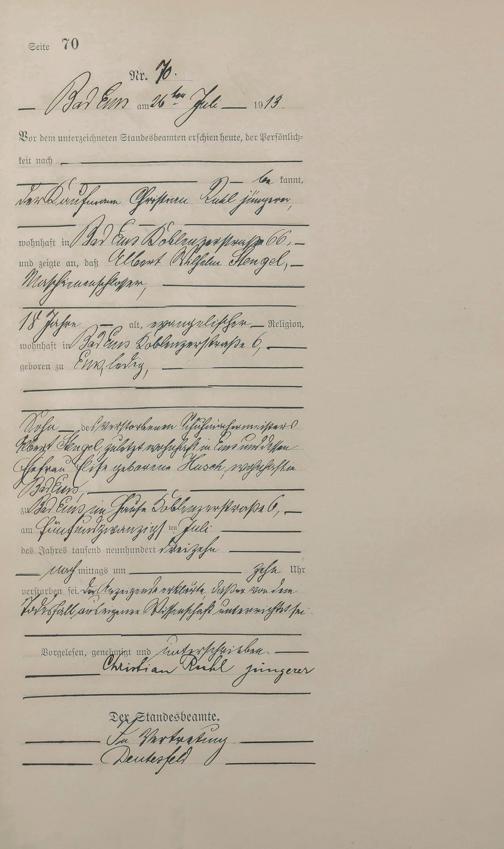 Seite 70
Nr. 70.
Bad Ems am 26ten Juli 1913.
Vor dem unterzeichneten Standesbeamten erschien heute, der Persönlich-
keit nach
be kannt,
der Kaufmann Christian Ruhl jüngerer,
wohnhaft in Bad Ems Koblenzerstraße 66,
und zeigte an, daß Albert Wilhelm Stengel,
Maschinenschlosser,
18 Jahre alt, evangelischer Religion,
wohnhaft in Bad Ems Koblenzerstraße 6,
geboren zu Ems, ledig,
Sohn des verstorbenen Schuhmachermeisters
Albert Stengel, zuletzt wohnhaft in Ems und dessen
Ehefrau Elise geborene wohnhaft in
Bad Ems,
zu Bad Ems im Hause Koblenzerstraße 6,
am fünfundzwanzigsten Juli
des Jahres tausend neunhundert dreizehn
nach mittags um zehn Uhr
verstorben sei. Der Anzeigende erklärte, daß er von dem
Todesfall aus eigener Wissenschaft unterrichtet sei.
Vorgelesen, genehmigt und unterschrieben.
Christian Ruhl jüngerer
Der Standesbeamte.
In Vertretung